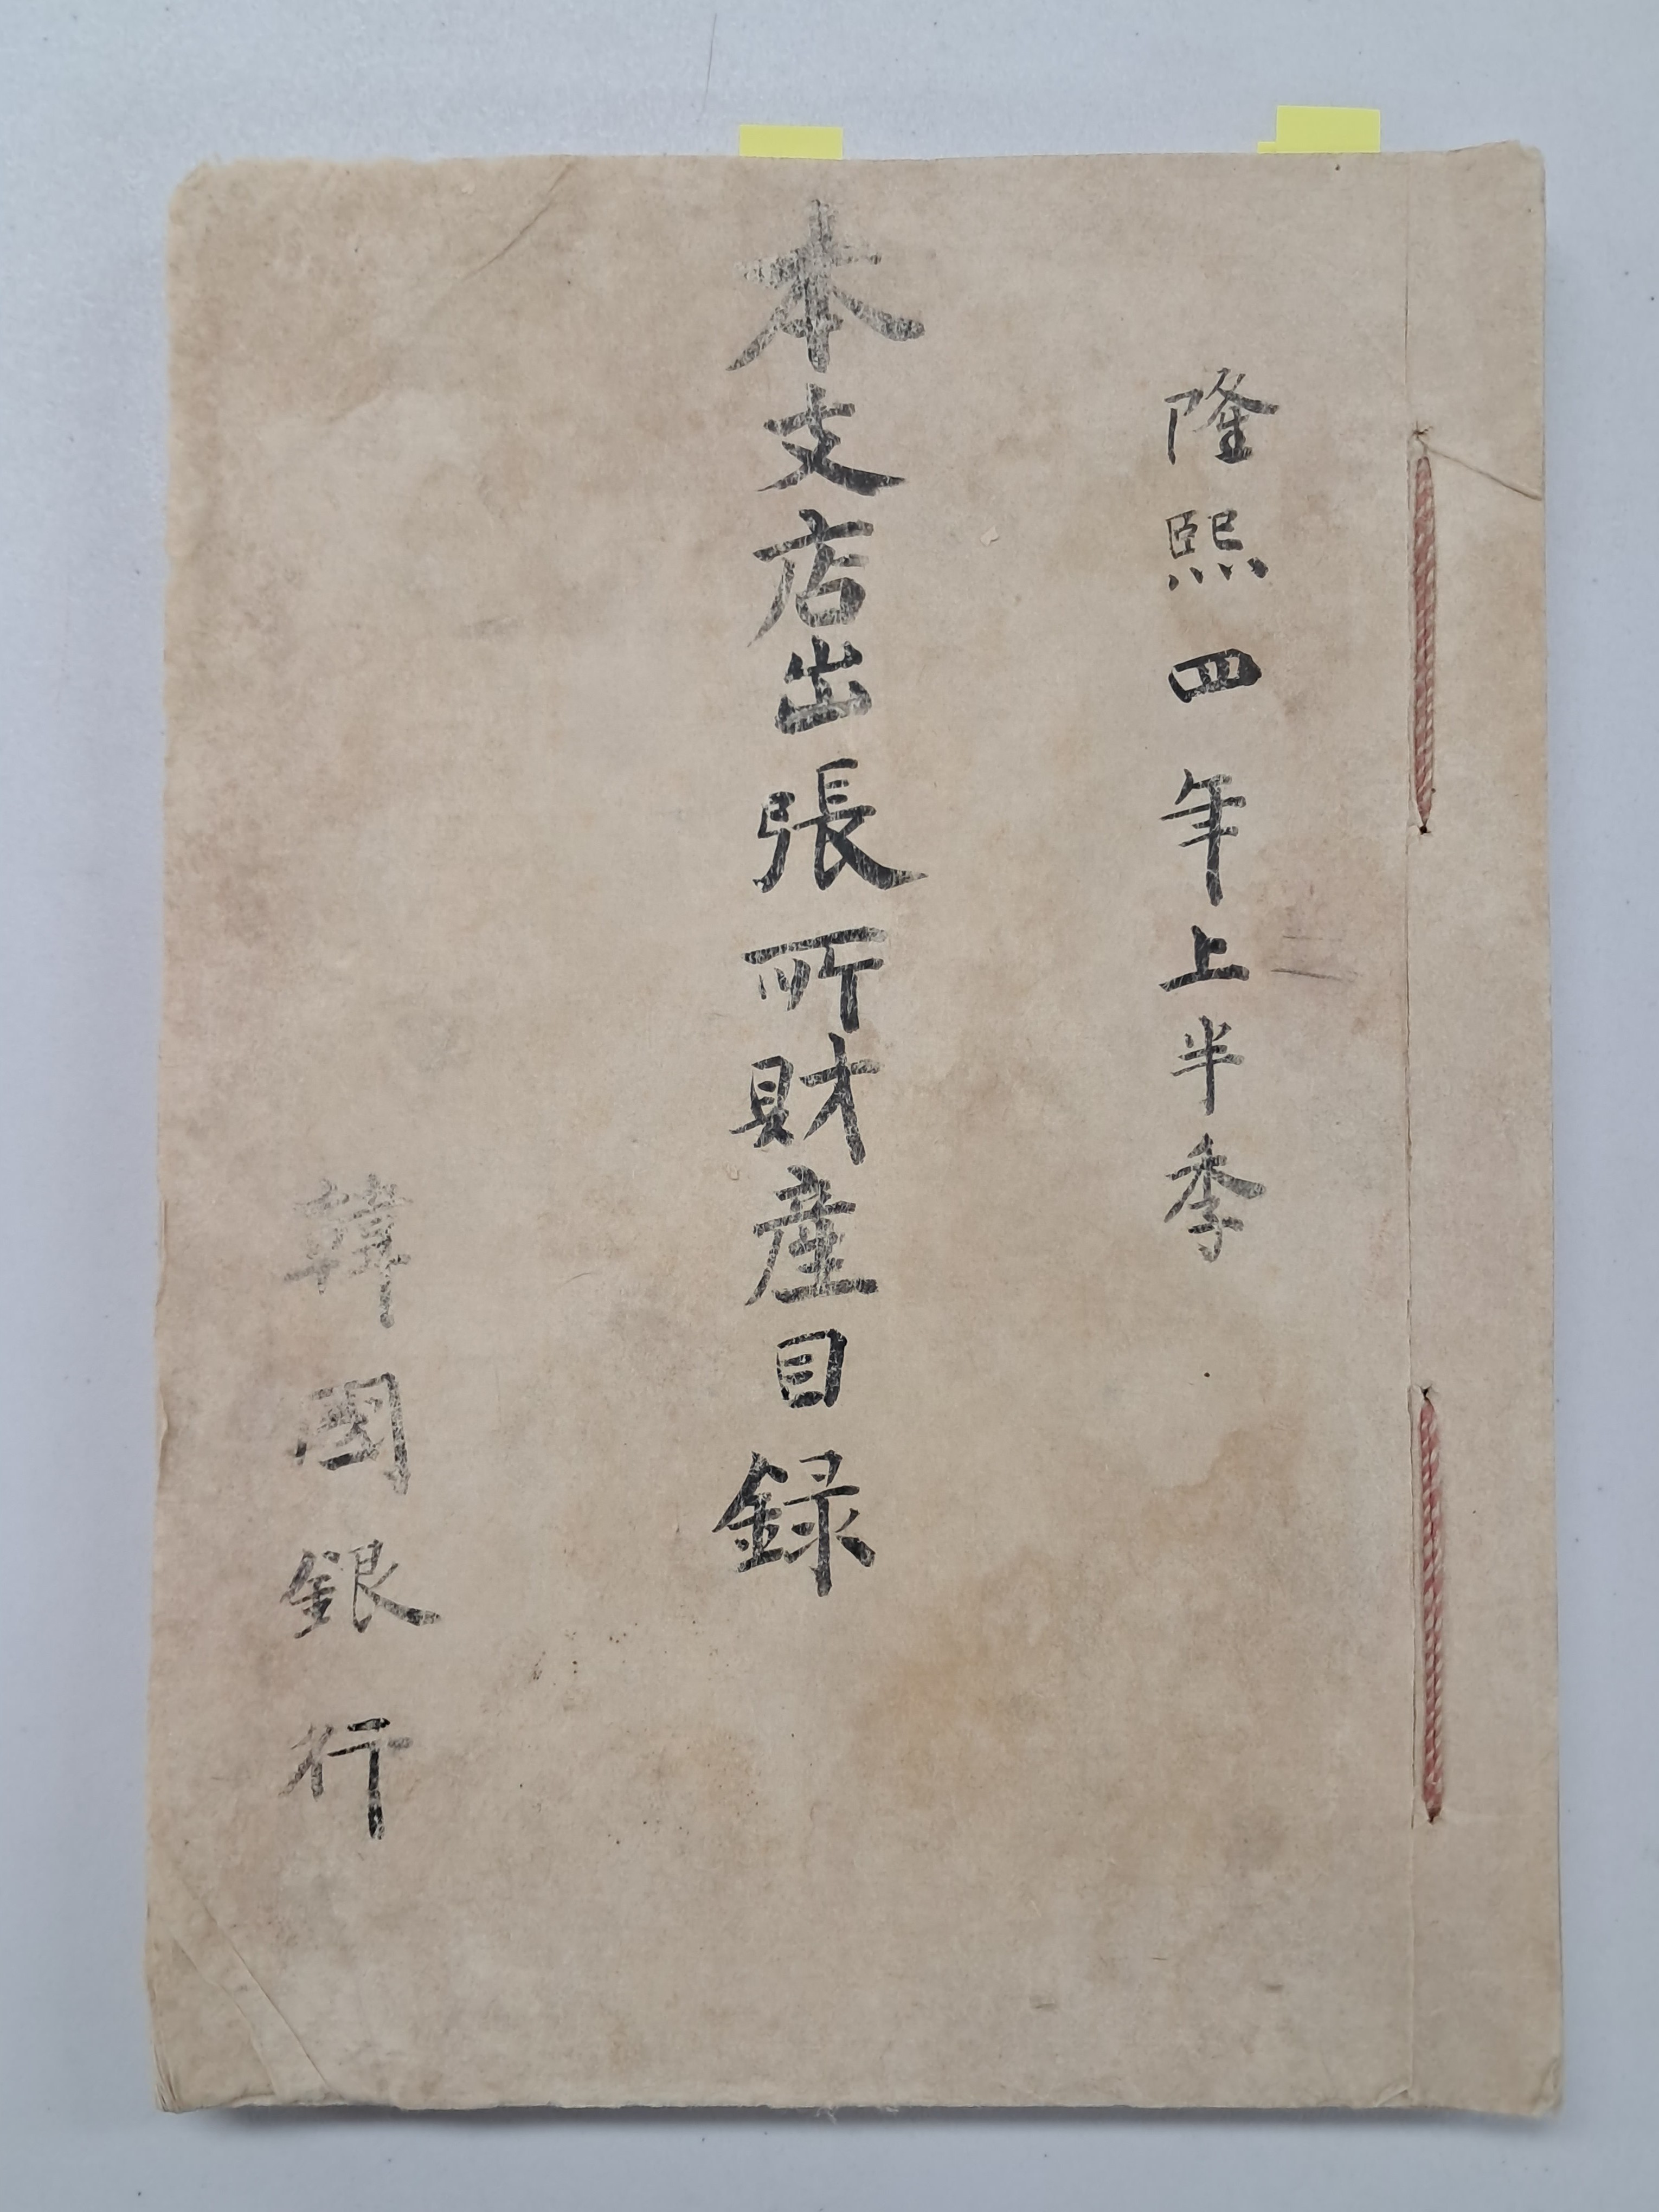 隆熙四年上半季
本支店出張所財産目録
韓國銀行